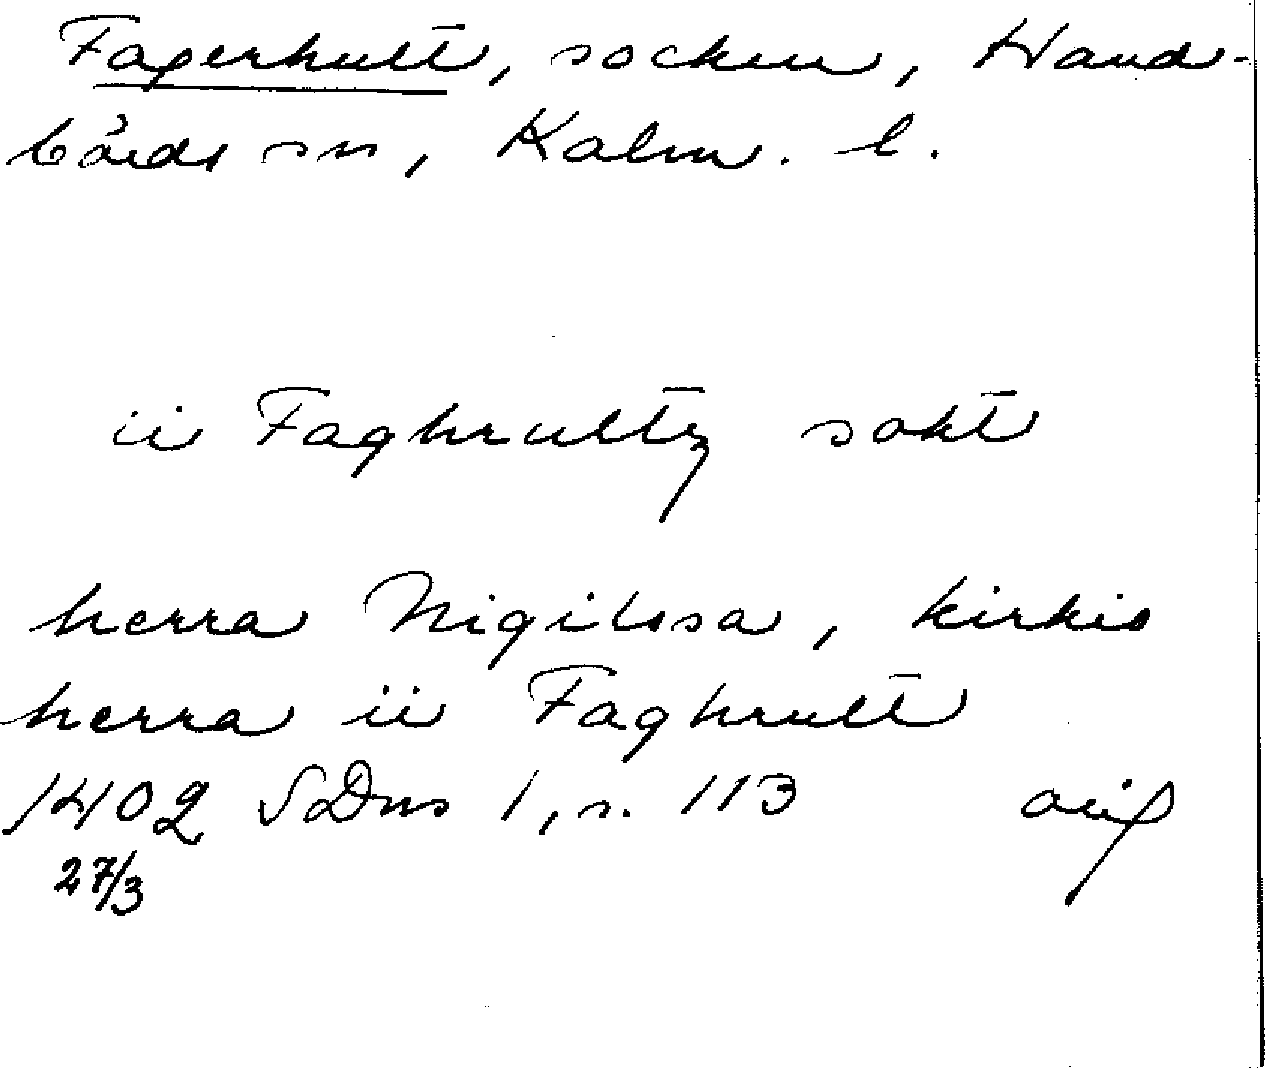 Fagerhult, socken, Hand-
börds sn, Kalm. l.
ii Faghrultz sokt
herra Nigilssa, kirkio
herra ii Faghrult
1402 SDns 1, s. 113 orig
27/3